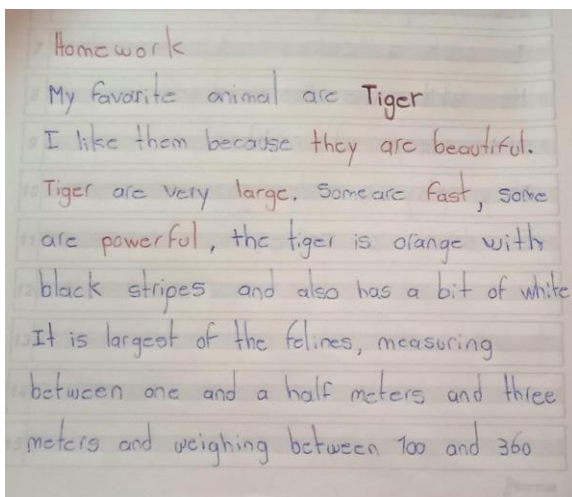 Homework
My favorite animal are Tiger
I like them because they are beautiful.
Tiger are very large. Some are fast, some
are powerful, the tiger is orange with
black stripes and also has a bit of white
It is largest of the felines, measuring
between one and a half meters and three
meters and weighing between 100 and 360